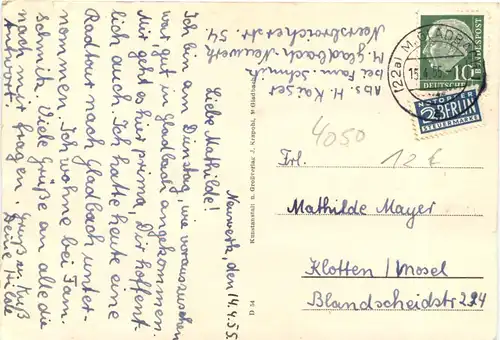 Abs. H. Kaiser
bei Fam. Schmitz
M. Gladbach-Neuwerk
Neersbroicherstr. 54.
Neuwerk, den 14.4.55.
Liebe Mathilde!
Ich bin am Dienstag, wie vorauszusehen
war gut in Gladbach angekommen.
Mir geht es hier prima, Dir hoffent-
lich auch. Ich hatte heute eine
Radtour nach Gladbach unter-
nommen. Ich wohne bei Fam.
Schmitz. Viele Grüße an alle die
nach mir fragen. Gruß u. Kuß
Antwort. Deine Hilde
D 34
Kunstanstalt u. Großverlag J. Krapohl, M Gladbach
(22a) M. GLADBACH
15.4.55
10
DEUTSCHE BUNDESPOST
NOTOPFER
2 BERLIN
STEUERMARKE
4050
12 €
Frl.
Mathilde Mayer
Klotten/Mosel
Blandscheidstr 224